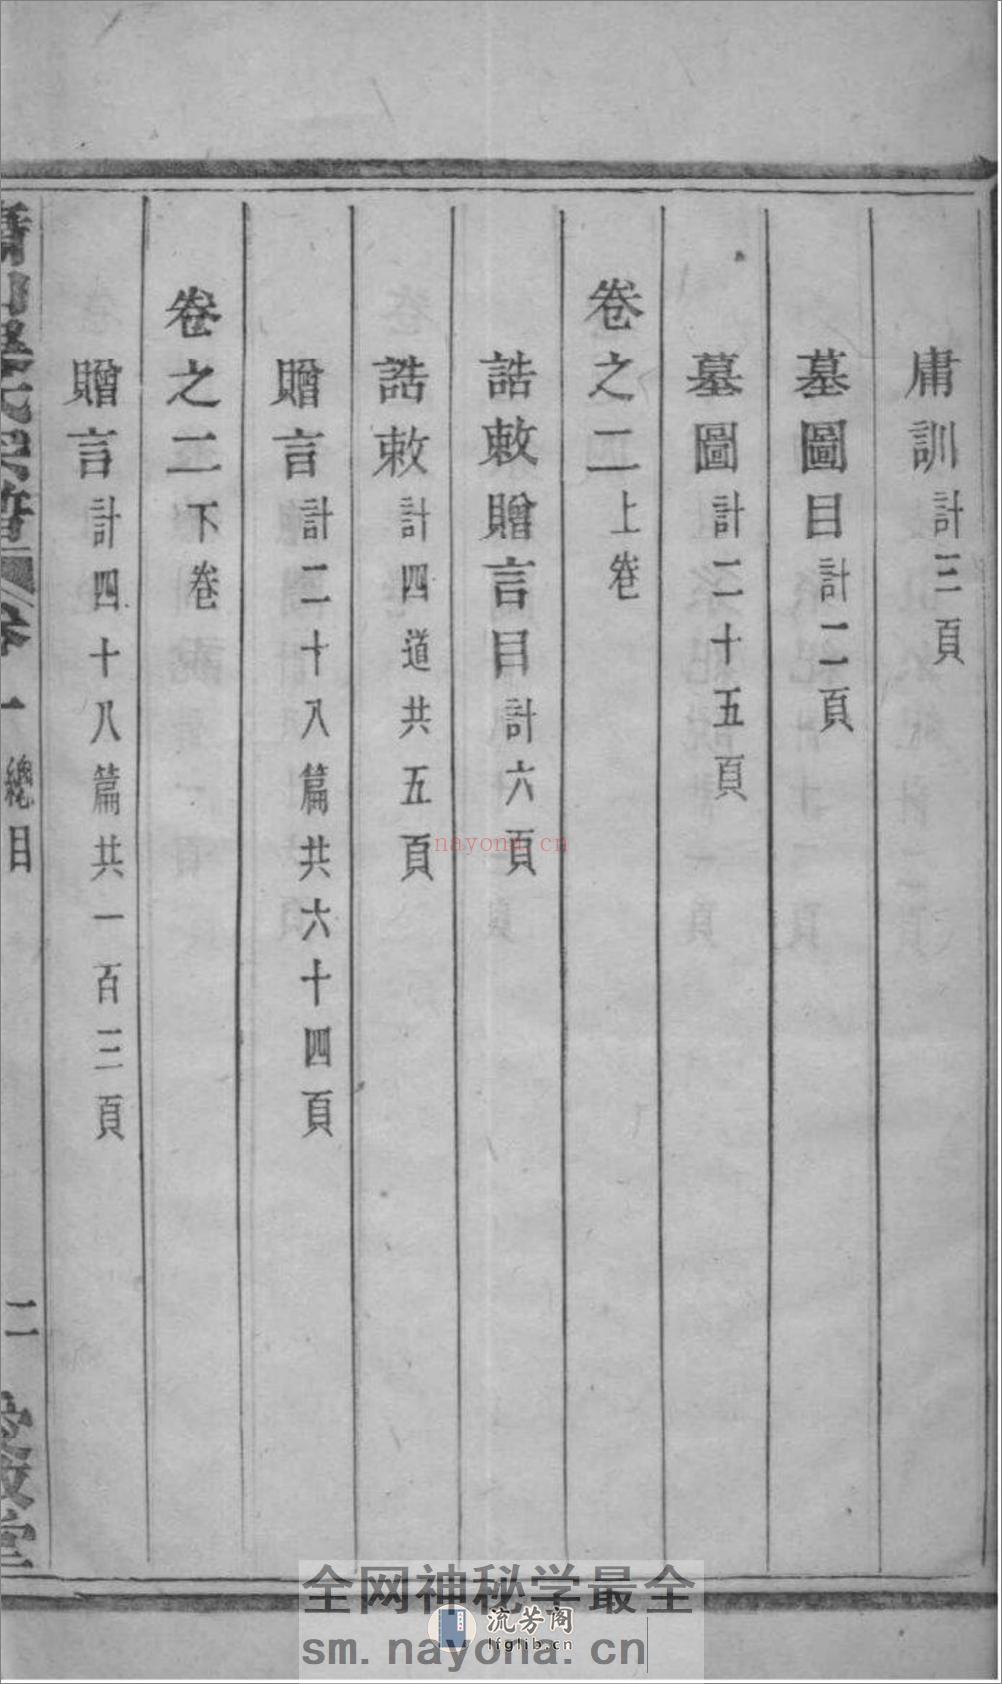 庸訓計三頁
墓圖目計二頁
墓圖計二十五頁
卷之二上卷
誥敕贈言目計六頁
誥敕計四道共五頁
贈言計二十八篇共六十四頁
卷之二下卷
贈言計四十八篇共一百三頁
氏宗譜 卷一 總目 二 敬堂
nayona.cn
全网神秘学最全
流芳阁
lfglib.cn
sm.nayona.cn